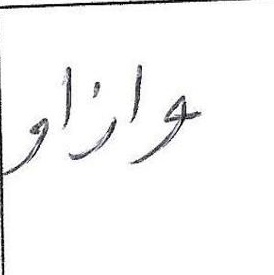 و از او